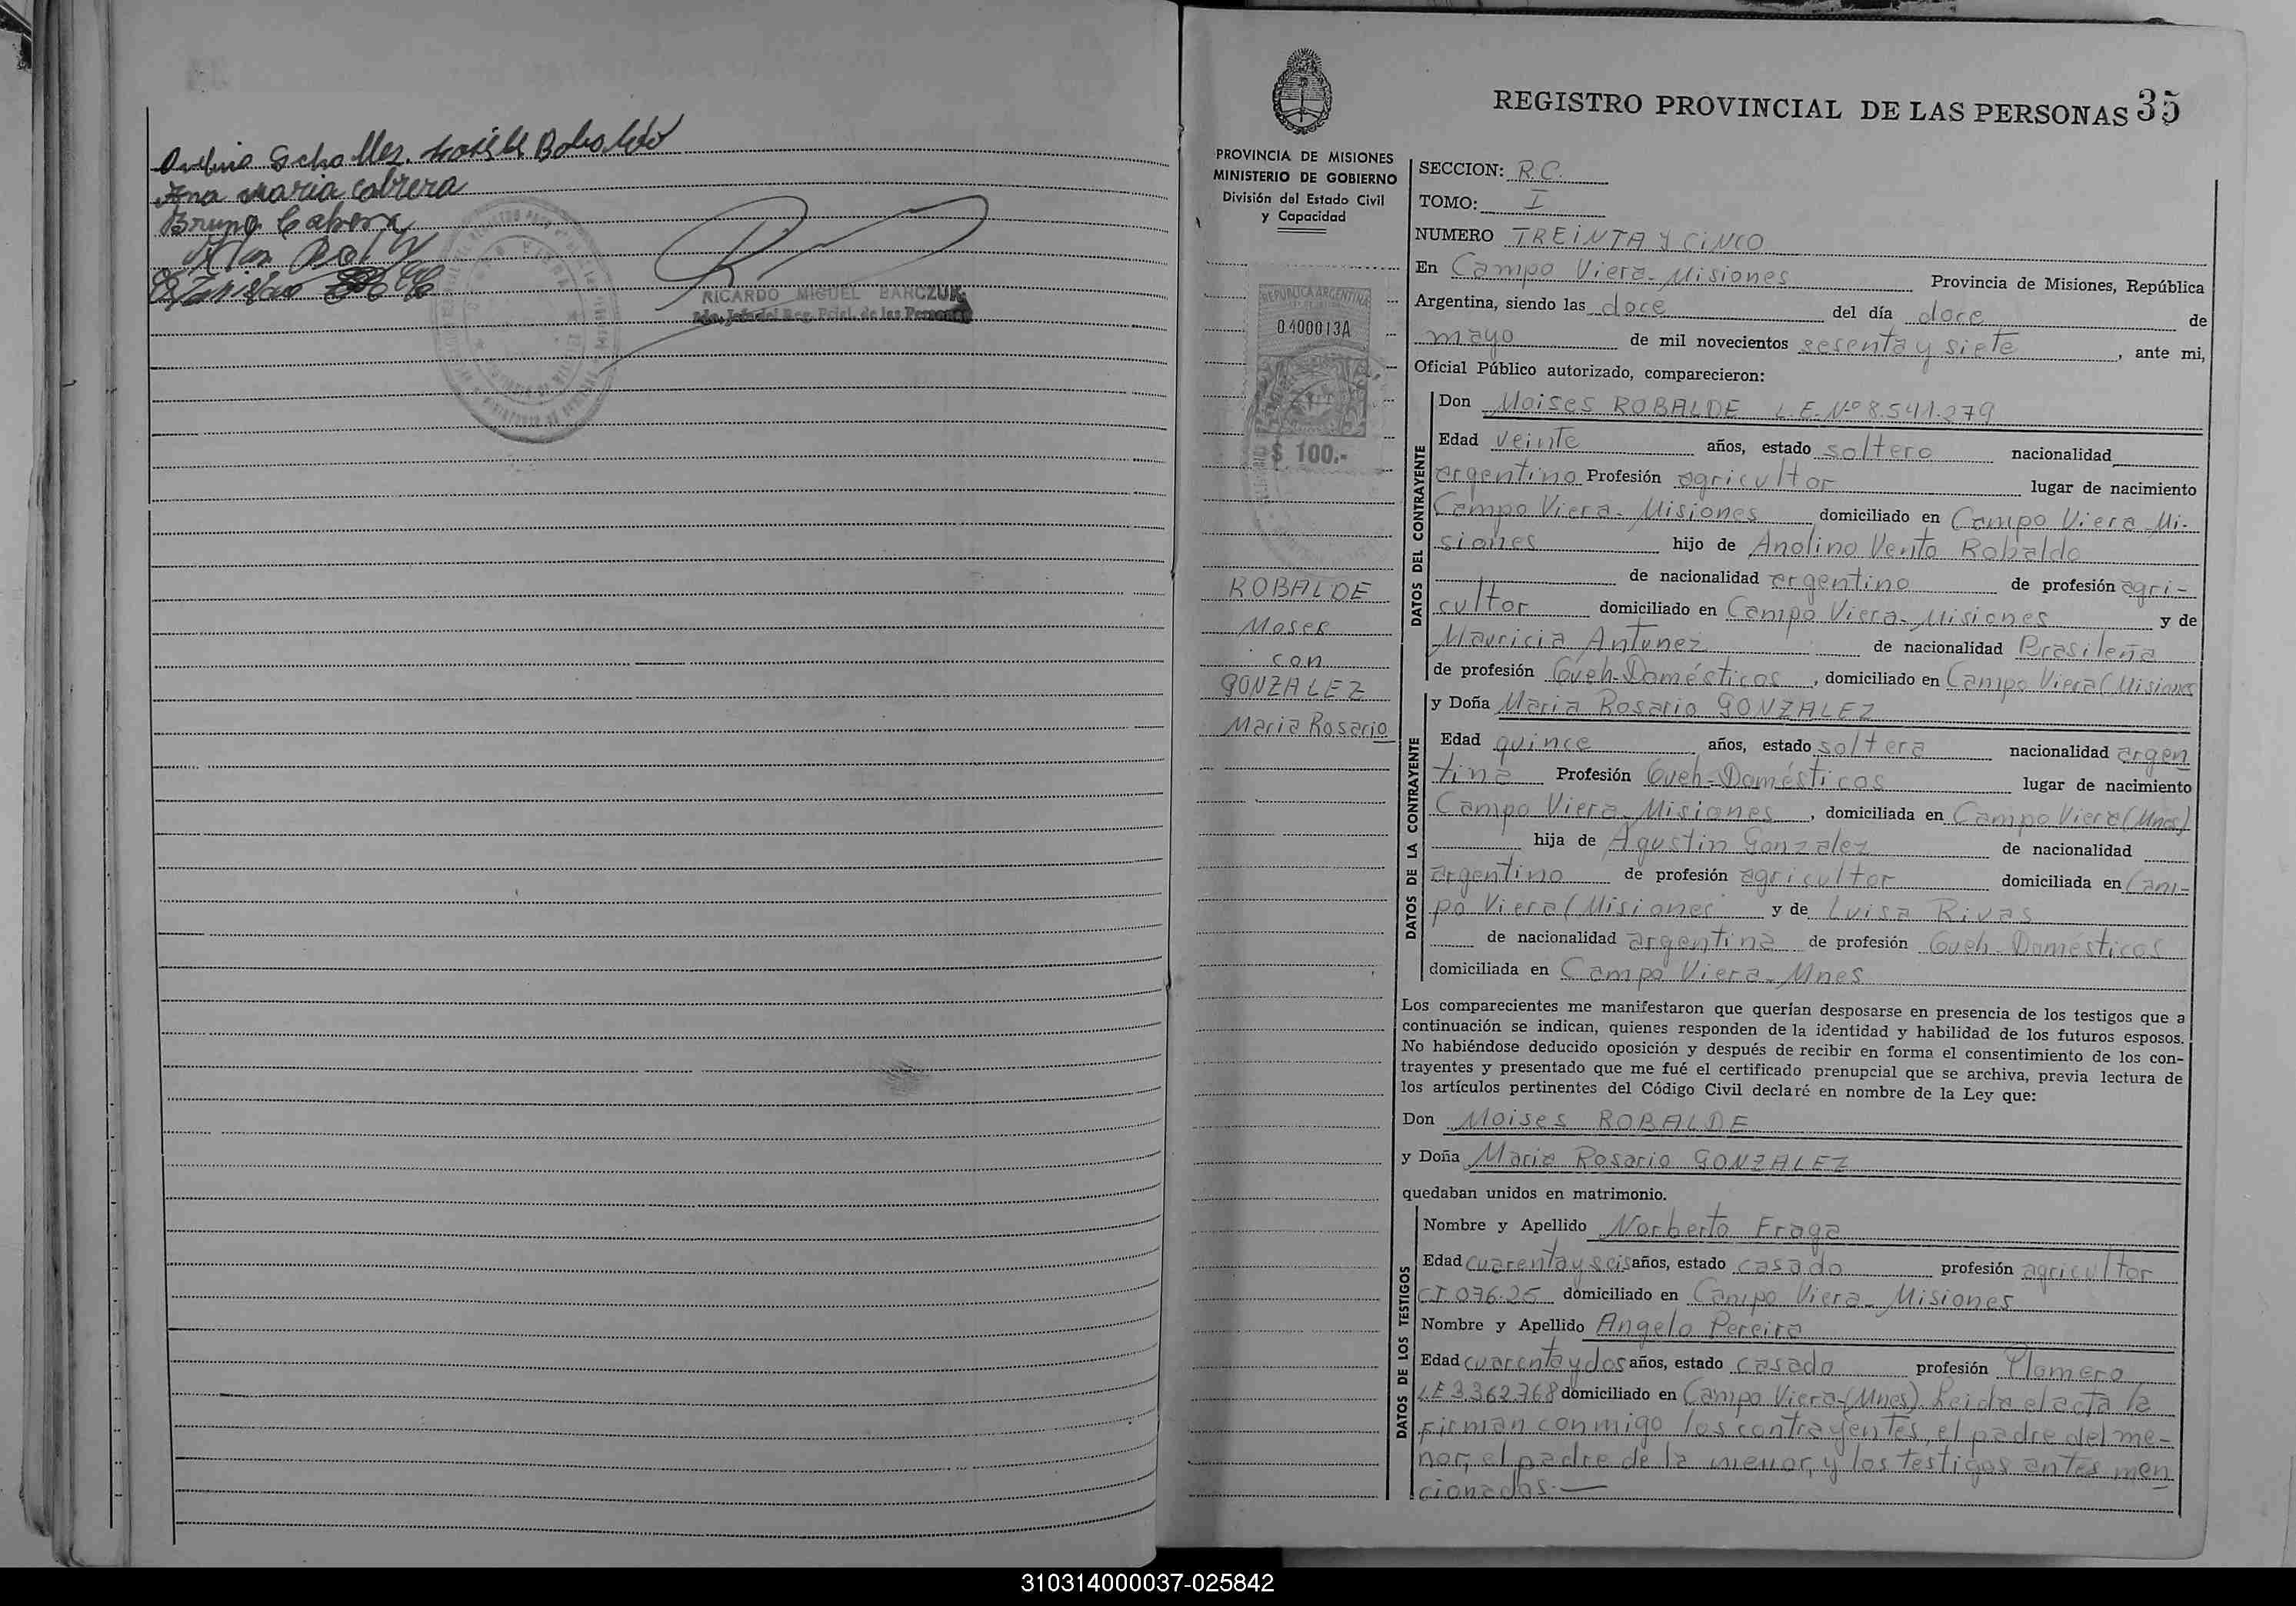 Ana Maria Cabrera
Bruno Cabrera
RICARDO MIGUEL BARCZUK
REGISTRO PROVINCIAL DE LAS PERSONAS 35
PROVINCIA DE MISIONES
MINISTERIO DE GOBIERNO
División del Estado Civil
y Capacidad
REPUBLICA ARGENTINA
0400013A
$ 100.-
ROBALDE
Moses
con
GONZALEZ
Maria Rosario
SECCION: R.C.
TOMO: I
NUMERO TREINTA Y CINCO
En Campo Viera - Misiones Provincia de Misiones, República
Argentina, siendo las doce del día doce de
mayo de mil novecientos sesenta y siete, ante mi,
Oficial Público autorizado, comparecieron:
DATOS DEL CONTRAYENTE
Don Moises ROBALDE L.E. Nº 8.541.279
Edad veinte años, estado soltero nacionalidad
argentino Profesión agricultor lugar de nacimiento
Campo Viera - Misiones domiciliado en Campo Viera Mi-
siones hijo de Anolino Vento Robaldo
de nacionalidad argentino de profesión agri-
cultor domiciliado en Campo Viera - Misiones y de
Mauricia Antunez de nacionalidad Brasileña
de profesión Queh-Domésticos, domiciliado en Campo Viera (Misiones
DATOS DE LA CONTRAYENTE
y Doña Maria Rosario GONZALEZ
Edad quince años, estado soltera nacionalidad argen
tina Profesión Queh-Domésticos lugar de nacimiento
Campo Viera - Misiones, domiciliada en Campo Viera (Mnes)
hija de Agustin Gonzalez de nacionalidad
argentino de profesión agricultor domiciliada en Cam-
po Viera (Misiones y de Luisa Rivas
de nacionalidad argentina de profesión Queh-Domésticos
domiciliada en Campo Viera - Mnes
Los comparecientes me manifestaron que querían desposarse en presencia de los testigos que a
continuación se indican, quienes responden de la identidad y habilidad de los futuros esposos.
No habiéndose deducido oposición y después de recibir en forma el consentimiento de los con-
trayentes y presentado que me fué el certificado prenupcial que se archiva, previa lectura de
los artículos pertinentes del Código Civil declaré en nombre de la Ley que:
Don Moises ROBALDE
y Doña Maria Rosario GONZALEZ
quedaban unidos en matrimonio.
DATOS DE LOS TESTIGOS
Nombre y Apellido Norberto Fraga
Edad cuarenta y seis años, estado casado profesión agricultor
CI 076.25 domiciliado en Campo Viera - Misiones
Nombre y Apellido Angelo Pereira
Edad cuarenta y dos años, estado casado profesión Plomero
LE 3.362.768 domiciliado en Campo Viera - (Mnes). Leida el acta la
firman conmigo los contrayentes, el padre del me-
nor, el padre de la menor, y los testigos antes men
cionados.-
310314000037-025842